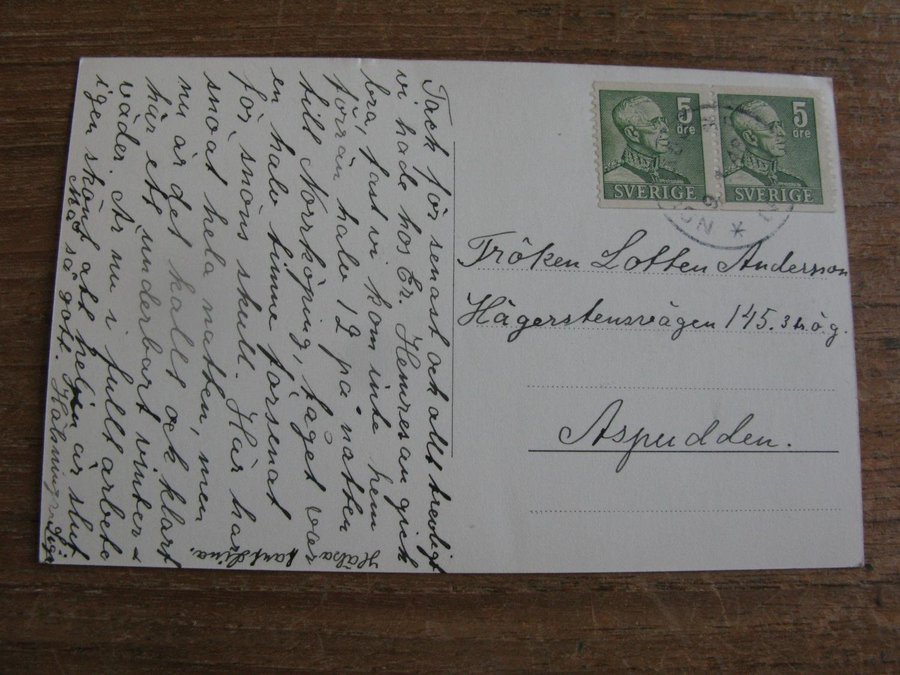 Tack för senast och allt trevligt
vi hade hos Er. Hemresan gick
bra, fast vi kom inte hem
förrän halv 12 på natten
till Norrköping, taget var
en halv timme försenat
för snöns skull. Här har
snöat hela natten, men
nu är det kallt och klart
här ett underbart vinter-
väder. Är nu i fullt arbete
igen skönt att helgen är slut
Må så gott. Hälsningar
Hälsa
5
öre
SVERIGE
5
öre
SVERIGE
Fröken Lotten Andersson
Hägerstensvägen 145. 3 tr. ö.g.
Aspudden.